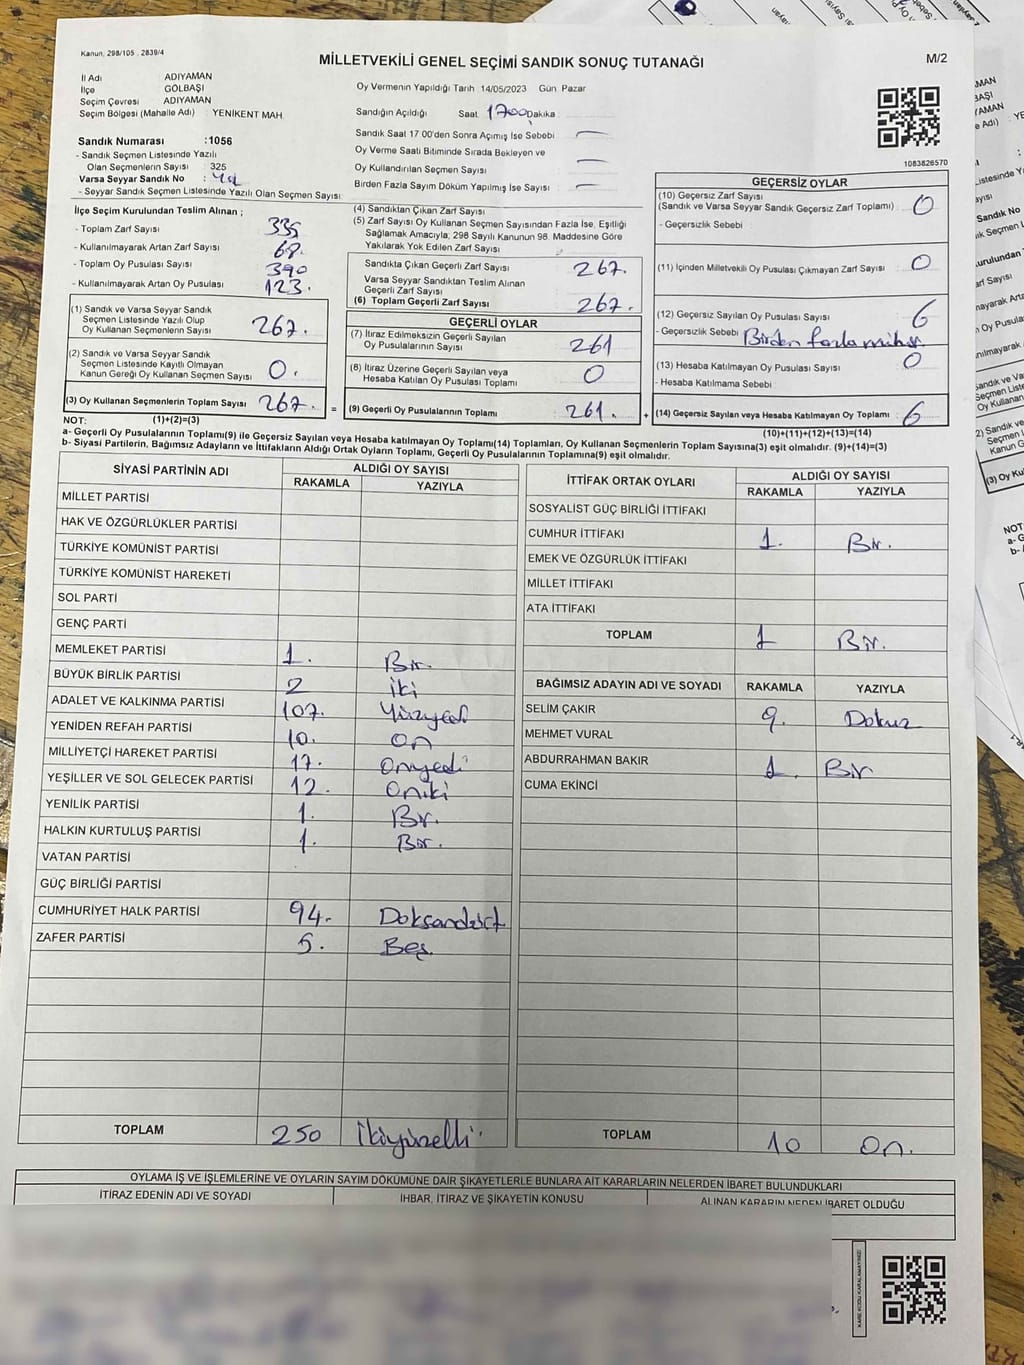 Kanun, 298/105 . 2839/4
MİLLETVEKİLİ GENEL SEÇİMİ SANDIK SONUÇ TUTANAĞI
M/2
İl Adı ADIYAMAN
İlçe GÖLBAŞI
Seçim Çevresi ADIYAMAN
Seçim Bölgesi (Mahalle Adı) YENİKENT MAH.
Sandık Numarası :1056
- Sandık Seçmen Listesinde Yazılı
Olan Seçmenlerin Sayısı : 325
Varsa Seyyar Sandık No :
- Seyyar Sandık Seçmen Listesinde Yazılı Olan Seçmen Sayısı:
Oy Vermenin Yapıldığı Tarih 14/05/2023 Gün Pazar
Sandığın Açıldığı Saat 1700 Dakika
Sandık Saat 17 00'den Sonra Açımış İse Sebebi
Oy Verme Saati Bitiminde Sırada Bekleyen ve
Oy Kullandırılan Seçmen Sayısı
Birden Fazla Sayım Döküm Yapılmış İse Sayısı
1083826570
İlçe Seçim Kurulundan Teslim Alınan ;
- Toplam Zarf Sayısı 335
- Kullanılmayarak Artan Zarf Sayısı 68.
- Toplam Oy Pusulası Sayısı 390
- Kullanılmayarak Artan Oy Pusulası 123.
(1) Sandık ve Varsa Seyyar Sandık
Seçmen Listesinde Yazılı Olup
Oy Kullanan Seçmenlerin Sayısı 267.
(2) Sandık ve Varsa Seyyar Sandık
Seçmen Listesinde Kayıtlı Olmayan
Kanun Gereği Oy Kullanan Seçmen Sayısı 0.
(3) Oy Kullanan Seçmenlerin Toplam Sayısı 267. =
(1)+(2)=(3)
(4) Sandıktan Çıkan Zarf Sayısı
(5) Zarf Sayısı Oy Kullanan Seçmen Sayısından Fazla İse, Eşitliği
Sağlamak Amacıyla, 298 Sayılı Kanunun 98. Maddesine Göre
Yakılarak Yok Edilen Zarf Sayısı
Sandıkta Çıkan Geçerli Zarf Sayısı 267.
Varsa Seyyar Sandıktan Teslim Alınan
Geçerli Zarf Sayısı
(6) Toplam Geçerli Zarf Sayısı 267.
GEÇERLİ OYLAR
(7) İtiraz Edilmeksizin Geçerli Sayılan
Oy Pusulalarının Sayısı 261
(8) İtiraz Üzerine Geçerli Sayılan veya
Hesaba Katılan Oy Pusulası Toplamı 0
(9) Geçerli Oy Pusulalarının Toplamı 261. +
GEÇERSİZ OYLAR
(10) Geçersiz Zarf Sayısı
(Sandık ve Varsa Seyyar Sandık Geçersiz Zarf Toplamı) : 0
- Geçersizlik Sebebi :
(11) İçinden Milletvekili Oy Pusulası Çıkmayan Zarf Sayısı : 0
(12) Geçersiz Sayılan Oy Pusulası Sayısı : 6
- Geçersizlik Sebebi : Birden fazla mühür
(13) Hesaba Katılmayan Oy Pusulası Sayısı : 0
- Hesaba Katılmama Sebebi :
(14) Geçersiz Sayılan veya Hesaba Katılmayan Oy Toplamı : 6
(10)+(11)+(12)+(13)=(14)
NOT:
a- Geçerli Oy Pusulalarının Toplamı(9) ile Geçersiz Sayılan veya Hesaba katılmayan Oy Toplamı(14) Toplamları, Oy Kullanan Seçmenlerin Toplam Sayısına(3) eşit olmalıdır. (9)+(14)=(3)
b- Siyasi Partilerin, Bağımsız Adayların ve İttifakların Aldığı Ortak Oyların Toplamı, Geçerli Oy Pusulalarının Toplamına(9) eşit olmalıdır.
SİYASİ PARTİNİN ADI ALDIĞI OY SAYISI
RAKAMLA YAZIYLA
MİLLET PARTİSİ
HAK VE ÖZGÜRLÜKLER PARTİSİ
TÜRKİYE KOMÜNİST PARTİSİ
TÜRKİYE KOMÜNİST HAREKETİ
SOL PARTİ
GENÇ PARTİ
MEMLEKET PARTİSİ 1. Bir.
BÜYÜK BİRLİK PARTİSİ 2 iki
ADALET VE KALKINMA PARTİSİ 107. Yüzyedi
YENİDEN REFAH PARTİSİ 10. on
MİLLİYETÇİ HAREKET PARTİSİ 17. Onyedi
YEŞİLLER VE SOL GELECEK PARTİSİ 12. Oniki
YENİLİK PARTİSİ 1. Bir.
HALKIN KURTULUŞ PARTİSİ 1. Bir.
VATAN PARTİSİ
GÜÇ BİRLİĞİ PARTİSİ
CUMHURİYET HALK PARTİSİ 94. Doksandört
ZAFER PARTİSİ 5. Beş.
TOPLAM 250 İkiyüzelli.
İTTİFAK ORTAK OYLARI ALDIĞI OY SAYISI
RAKAMLA YAZIYLA
SOSYALİST GÜÇ BİRLİĞİ İTTİFAKI
CUMHUR İTTİFAKI 1. Bir.
EMEK VE ÖZGÜRLÜK İTTİFAKI
MİLLET İTTİFAKI
ATA İTTİFAKI
TOPLAM 1 Bir.
BAĞIMSIZ ADAYIN ADI VE SOYADI RAKAMLA YAZIYLA
SELİM ÇAKIR 9. Dokuz
MEHMET VURAL
ABDURRAHMAN BAKIR 1. Bir
CUMA EKİNCİ
TOPLAM 10 On.
OYLAMA İŞ VE İŞLEMLERİNE VE OYLARIN SAYIM DÖKÜMÜNE DAİR ŞİKAYETLERLE BUNLARA AİT KARARLARIN NELERDEN İBARET BULUNDUKLARI
İTİRAZ EDENİN ADI VE SOYADI İHBAR, İTİRAZ VE ŞİKAYETİN KONUSU ALINAN KARARIN NEDEN İBARET OLDUĞU
KARE KODU KARALAMAYINIZ!